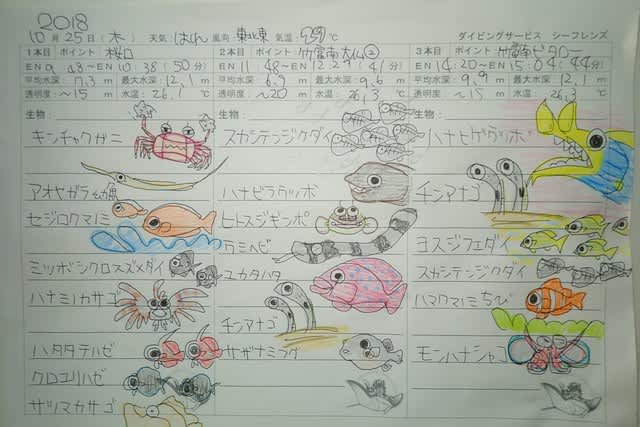 2018
10月25日(木) 天気:はれ 風向:東北東 気温:29℃ ダイビングサービス シーフレンズ
1本目 ポイント 桜口
EN 9:48～EN 10:38 (50分)
平均水深 7.3m 最大水深 12.1m
透明度～15m 水温:26.1℃
生物:
キンチャクガニ
アオヤガラ幼魚
セジロクマノミ
ミツボシクロスズメダイ
ハナミノカサゴ
ハタタテハゼ
クロユリハゼ
サツマカサゴ
2本目 ポイント 竹富南
EN 11:48～EN 12:29 (41分)
平均水深 6.9m 最大水深 9.6m
透明度～20m 水温:26.3℃
生物:
スカシテンジクダイ
ハナビラウツボ
ヒトスジギンポ
ウミヘビ
ユカタハタ
チンアナゴ
サザナミフグ
3本目 ポイント 竹富南
EN 14:20～EN 15:04 (44分)
平均水深 9.9m 最大水深 12.1m
透明度～15m 水温:26.3℃
生物:
ハナヒゲウツボ
チンアナゴ
ヨスジフエダイ
スカシテンジクダイ
ハマクマノミちび
モンハナシャコ